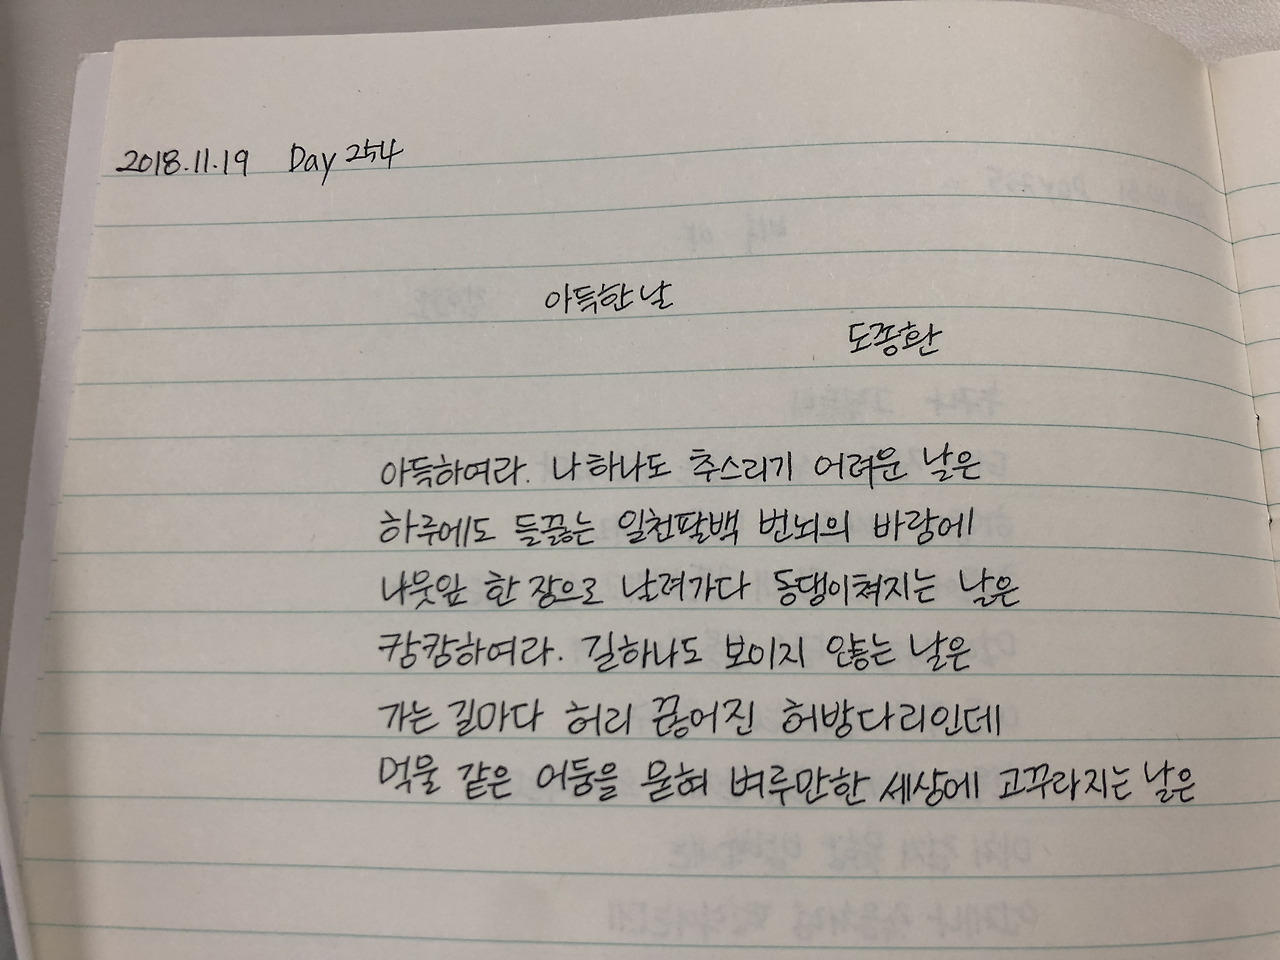 2018.11.19 Day 254
아득한 날
도종환
아득하여라. 나 하나도 추스리기 어려운 날은
하루에도 들끓는 일천팔백 번뇌의 바람에
나뭇잎 한 장으로 날려가다 동댕이쳐지는 날은
캄캄하여라. 길 하나도 보이지 않는 날은
가는 길마다 허리 끊어진 허방다리인데
먹물 같은 어둠을 묻혀 벼루만한 세상에 고꾸라지는 날은